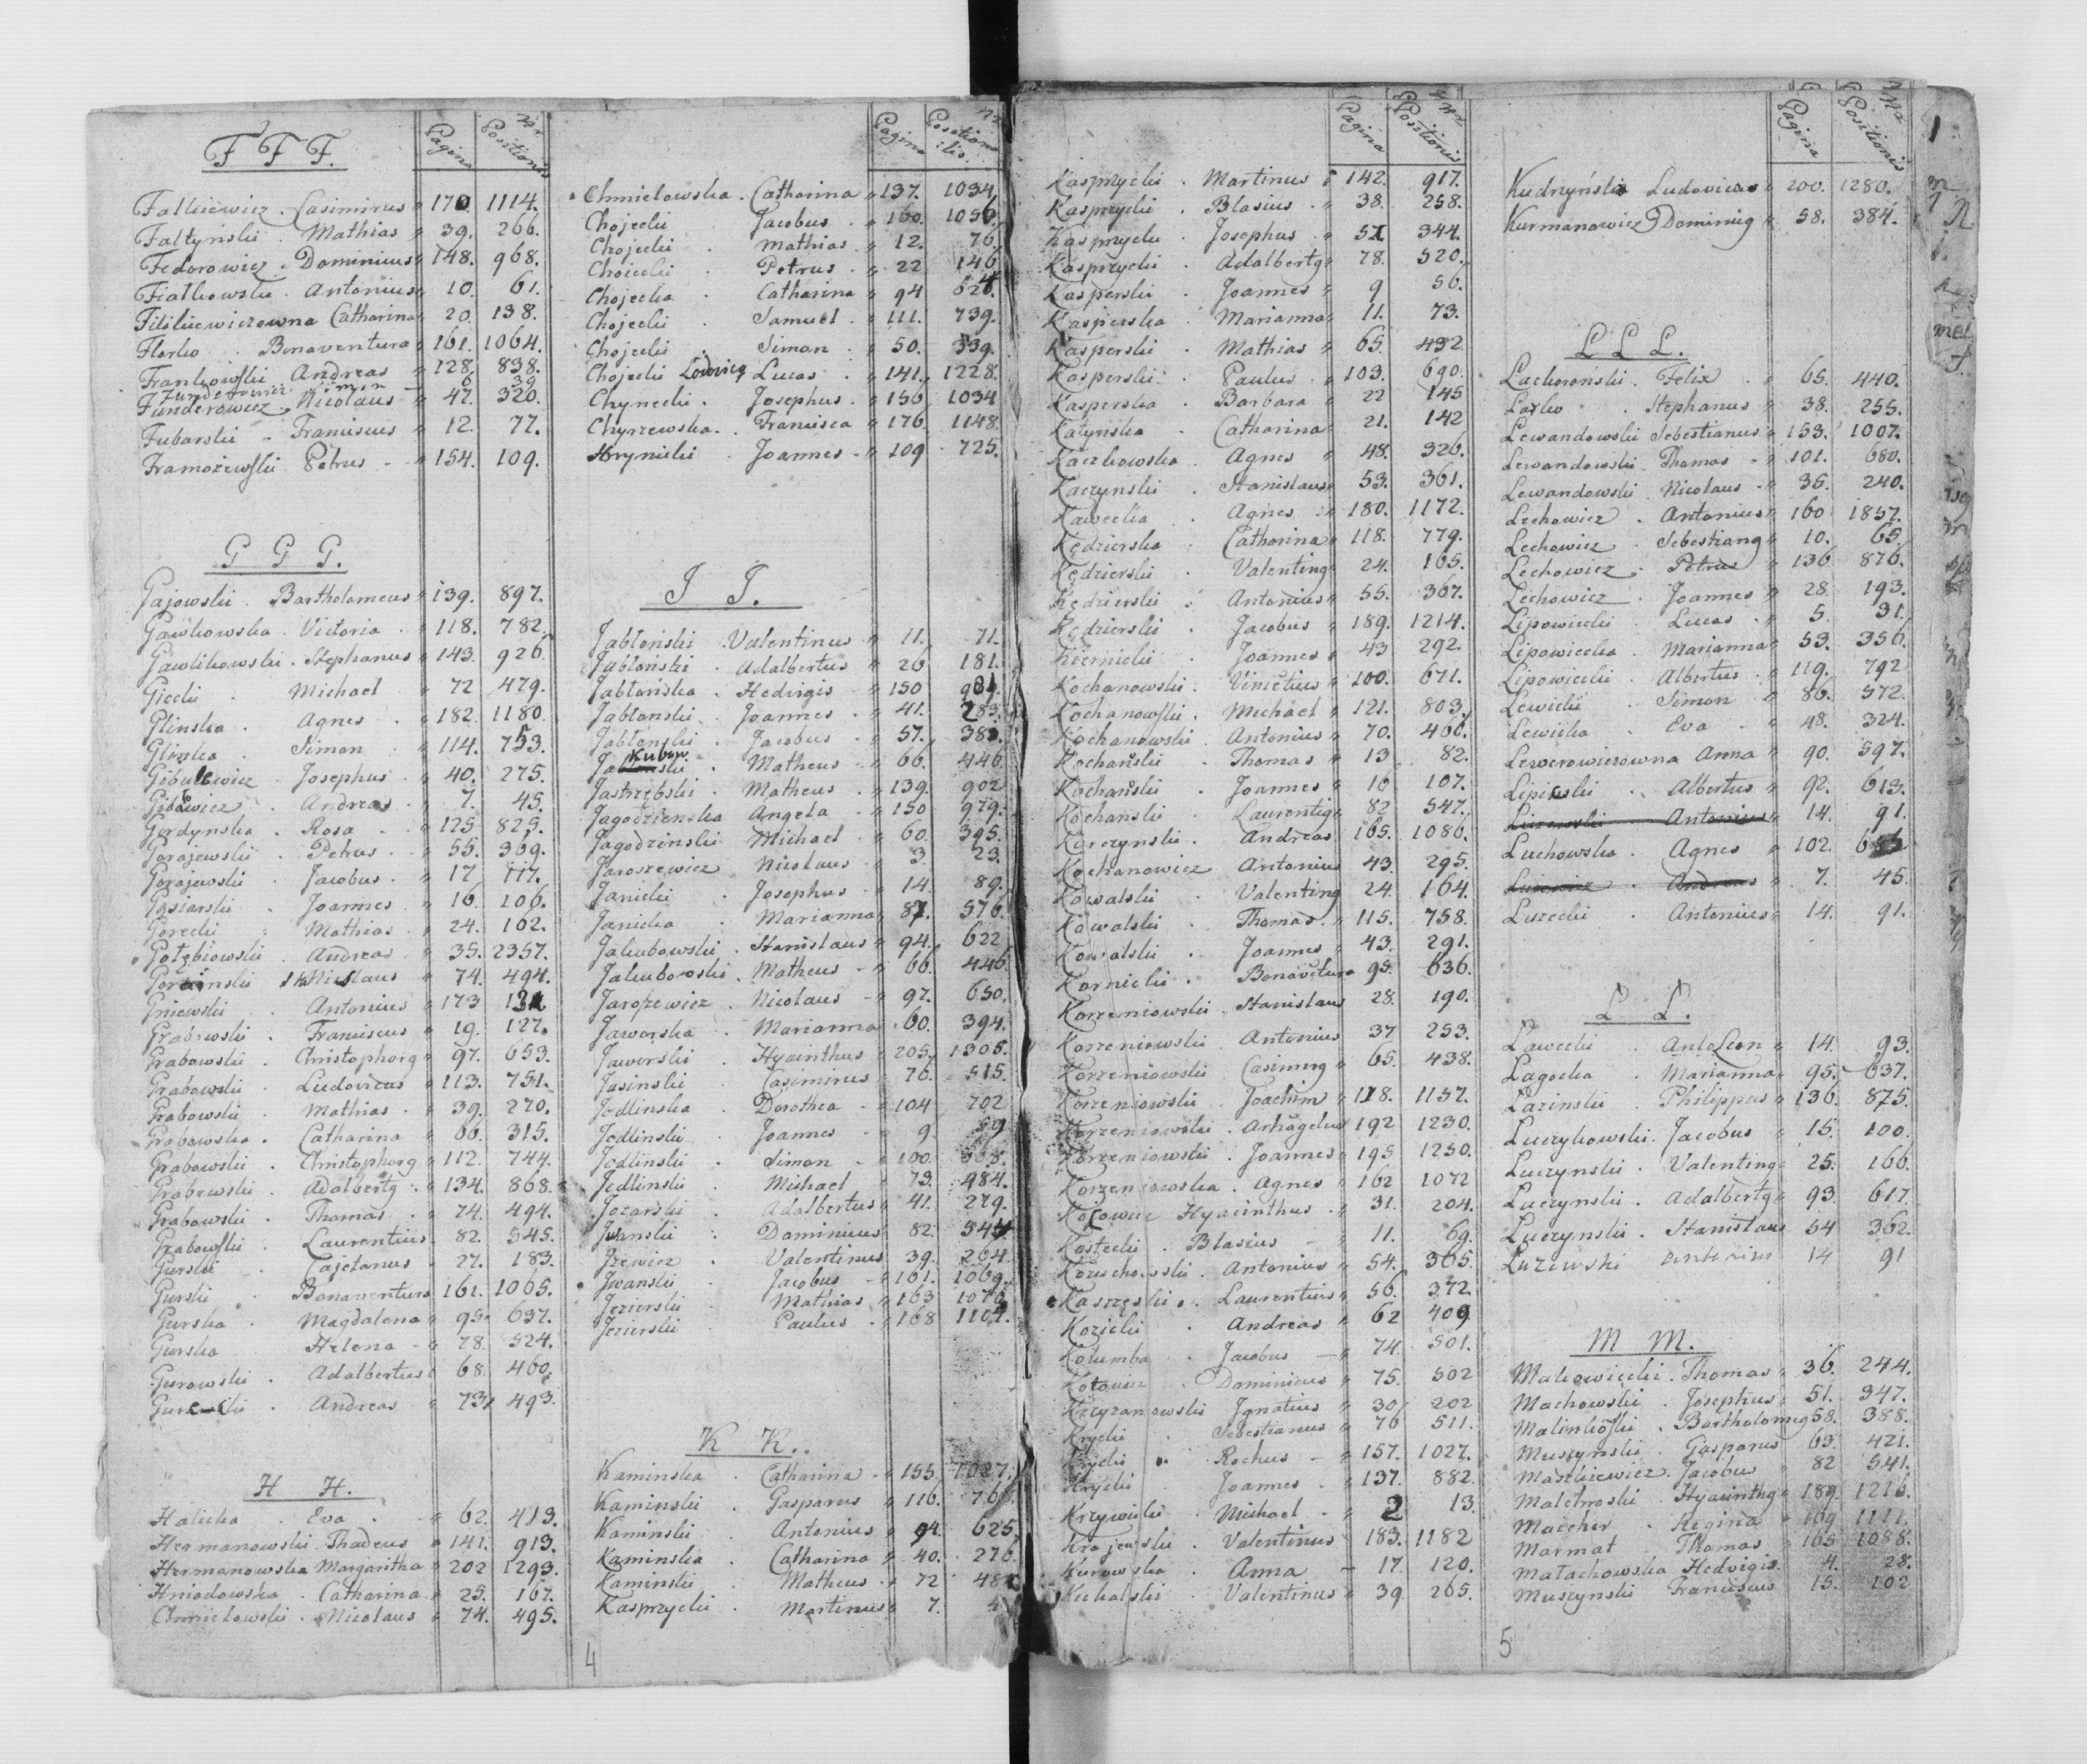 F F F.
Pagina
Nr Positionis
Falkiewicz . Casimirus " 170. 1114.
Faltyński . Mathias " 39. 266.
Fedorowicz . Dominicus " 148. 968.
Fiałkowski . Antonius " 10. 61.
Filikiewiczowna Catharina " 20. 138.
Florko . Bonaventura " 161. 1064.
Frankowski Andreas " 128. 838.
Funderowicz Simon 6 39
Funderowicz Nicolaus - 47. 320.
Fubarski - Franciscus " 12. 77.
Framożewski Petrus - " 154. 109.
G G G.
Gajowski . Bartholomeus " 139. 897.
Gawkowska . Victoria . " 118. 782.
Gawlikowski . Stephanus " 143. 926.
Giecki . Michael " 72 479.
Glinska . Agnes . " 182. 1180.
Glinka . Simon " 114. 753.
Gibulewicz Josephus . " 40. 275.
Andreas . " 7. 45.
Gordynska . Rosa . " 125 825.
Gorajewski . Petrus . " 55. 369.
Gorajewski . Jacobus . " 17 117.
Gąsiarski . Joannes " 16. 106.
Gorecki . Mathias . " 24. 162.
Gołębiowski . Andreas . " 35. 2357.
" 74. 494.
Gniewski . Antonius " 173
Grabowski . Franciscus " 19. 127.
Grabowski . Christophorg " 97. 653.
Grabowski . Ludovicus " 113. 751.
Grabowski . Mathias . " 39. 270.
Grabowska . Catharina " 66. 315.
Grabowski . Christophorg " 112. 744.
Grabowski . Adalbertg . " 134. 868.
Grabowski . Thomas . " 74. 494.
Grabowski . Laurentius . 82. 545.
Gurski . Cajetanus - 27. 183.
Gurski . Bonaventura 161. 1065.
Gurska . Magdalena " 95. 637.
Gurska . Helena - " 78. 524.
Gurowski . Adalbertus " 68. 460.
Andreas " 73. 493.
H H.
Halicka . Eva . " 62. 413.
Hermanowski . Thadeus " 141. 913.
Hermanowska Margaritha " 202 1293.
Hniadowska . Catharina " 25. 167.
Chmielowski . Nicolaus " 74. 495.
Pagina
Nr Positionis
Chmielowska . Catharina " 137. 1034.
Chojecki Jacobus . " 160. 1056.
Chojecki . Mathias . " 12. 76.
Choiecki . Petrus . " 22 146
Chojecka . Catharina " 94 624.
Chojecki . Samuel . " 111. 739.
Chojecki . Simon . " 50. 339.
Chojecki Lodovicg Lucas . " 141. 1228.
Chynecki . Josephus . " 156 1034
Chyrzewska . Francisca " 176. 1148.
Hrynicki . Joannes . " 109 725.
J J.
Jabłoński . Valentinus " 11. 71.
Jabłonski . Adalbertus " 26 181.
Jabłońska . Hedvigis " 150 981.
Jabłonski . Joannes . " 41. 283.
Jabłonski . Jacobus . " 57. 383.
Kubow. Matheus . " 66. 446.
Jastrzębski . Matheus . " 139. 902
Jagodzienska Angela . " 150 979.
Jagodzinski Michael . " 60. 395.
Jaroszewicz Nicolaus . " 3. 23.
Janicki . Josephus . " 14. 89.
Janicka . Marianna " 87. 576.
Jakubowski . Stanislaus " 94. 622
Jakubowski . Matheus . " 66. 446
Jarożewicz . Nicolaus - " 97. 650.
Jaworska . Marianna " 60. 394.
Jaworski . Hyacinthus " 205. 1305.
Jasinski . Casimirus " 76. 515.
Jedlinska . Dorothea . " 104 702
Jedlinski . Joannes " 9. 59
Jedlinski . Simon . " 100.
Jedlinski . Michael " 73. 484.
Jozarski . Adalbertus " 41. 279.
Dominicus " 82. 544
Jzewicz . Valentinus 39. 264.
Jwanski . Jacobus " 161. 1069.
Jezierski . Mathias " 163
Jezierski . Paulus . " 168 1107.
K K.
Kaminska . Catharina . " 155. 1027.
Kaminski . Gasparus " 116. 76
Kaminski . Antonius " 94. 625.
Kaminska . Catharina " 40. 276.
Kaminski . Matheus . " 72 48
Kasprzycki . Martinus " 7. 4
4
Pagina
Nr Positionis
Kasprzycki . Martinus " 142. 917.
Kasprzycki . Blasius . " 38. 258.
Kasprzycki . Josephus . " 51 344.
Kasprzycki . Adalbertg " 78. 520.
Kasperski . Joannes " 9 56.
Kasperska . Marianna " 11. 73.
Kasperski . Mathias " 65. 432
Kasperski . Paulus . " 103. 690.
Kasperska . Barbara " 22 145
Katyńska . Catharina " 21. 142
Kaczkowska . Agnes " 48. 326.
Kaczynski . Stanislaus " 53. 361.
Kawecka . Agnes . " 180. 1172.
Kędzierska . Catharina " 118. 779.
Kędzierski . Valenting " 24. 165.
Kędzierski . Antonius " 55. 367.
Kędzierski . Jacobus " 189. 1214.
Kiernicki . Joannes " 43 292.
Kochanowski . Vincetius " 100. 671.
Kochanowski . Michael " 121. 803.
Kochanowski . Antonius " 70. 466.
Kochański . Thomas " 13 82.
Kochański . Joannes " 16 107.
Kochanski . Laurentig " 82 547.
Korczynski . Andreas 165. 1086.
Kochanowicz Antonius 43. 295.
Kowalski . Valenting 24. 164.
Kowalski . Thomas . " 115. 758.
Kowalski . Joannes " 43. 291.
Kornicki . Bonavetura 95. 636.
Korzeniowski . Stanislaus 28. 190.
Korzeniowski . Antonius 37 253.
Korzeniowski Casimirg " 65. 438.
Korzeniowski . Joachim " 178. 1157.
Korzeniowski . Arhagelus 192 1230.
Korzeniowski . Joannes " 195 1250.
Korzeniowska . Agnes " 162 1072
Kocowicz Hyacinthus . " 31. 204.
Kostecki . Blasius - " 11. 69.
Kozuchowski . Antonius " 54. 365.
Laurentius " 56. 372.
Kozicki . Andreas " 62 409
Kolumba . Jacobus - " 74. 501.
Kotowicz . Dominicus " 75. 502
Krzyzanowski Ignatius " 30 202
Krycki . Sebestianus " 76 511.
Krycki . Rochus - " 157. 1027.
Krycki . Joannes . " 137. 882.
Krzywicki . Michael . " 2 13.
Krajewski . Valentinus " 183. 1182
Kurowska . Anna - 17. 120.
Kuchalski . Valentinus " 39. 265.
Pagina
Nr Positionis
Kudrzyński Ludovicus " 200. 1280.
Kurmanowicz Dominicg " 58. 384.
L L L.
Lachoroński . Felix . " 65. 440.
Lasko . Stephanus " 38. 255.
Lewandowski Sebestianus " 153. 1007.
Lewandowski . Thomas " 101. 680.
Lewandowski . Nicolaus . " 35. 240.
Lechowicz . Antonius " 160 1857.
Lechowicz . Sebestiang " 10. 65.
Lechowicz . Petrus " 136 876.
Lechowicz . Joannes " 28. 193.
Lipowiecki . Lucas . " 5. 31.
Lipowiecka . Marianna " 53. 356.
Lipowiecki . Albertus . " 119. 792
Lewicki . Simon . " 86. 572.
Lewicka . Eva . " 48. 324.
Lewerowiczowna Anna " 90. 597.
Lipinski . Albertus " 92. 613.
Antonius " 14. 91.
Luchowska . Agnes " 102
Andreas " 7. 45.
Luzecki . Antonius " 14. 91.
Ł Ł.
Ławecki . Anto Leon " 14. 93.
Łagocka . Marianna " 95. 637.
Łazinski . Philippus " 136. 875.
Łuczykowski . Jacobus " 15. 100.
Łuczynski . Valenting " 25. 166.
Łuczynski . Adalbertg " 93. 617.
Łuczynski . Stanislaus 54 362.
Łuzewski Antonius 14 91
M M.
Makowiecki . Thomas " 36. 244.
Machowski . Josephus " 51. 347.
Malinkoski . Bartholomeg 58. 388.
Muszynski . Gasparus 63. 421.
Maszkiewicz . Jacobus " 82 541.
Hyacinthg " 189. 1216.
Macher . Regina " 169 1111.
Marmat . Thomas " 165 1088.
Małachowska Hedvigis . 4. 28.
Muszynski Franciscus " 15. 102
5